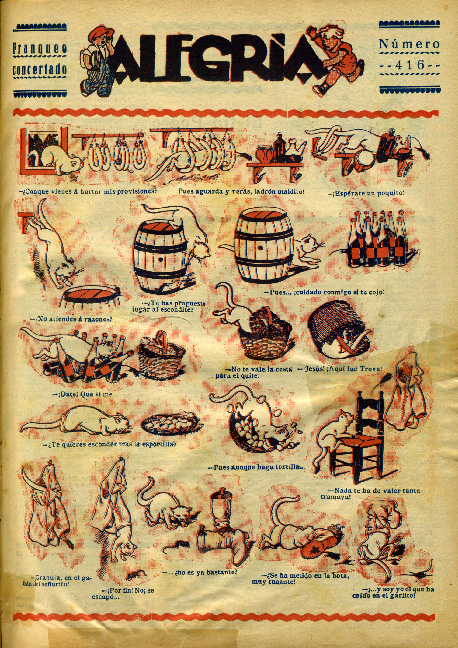 Franqueo
concertado
ALEGRÍA
Número
--416--
—¿Conque vienes á hurtar mis provisiones?
Pues aguarda y verás, ladrón maldito!
—¡Espérate un poquito!
—¿No atiendes á razones?
—¿Te has propuesto
jugar al escondite?
—Pues... ¡cuidado conmigo si te cojo!
—¡Date! Que si me
—No te vale la cesta
para el quite.
—¡Jesús! ¡Aquí fué Troya!
—¿Te quieres esconder tras la esportilla?
—Pues aunque haga tortilla...
—Nada te ha de valer tanta
tramoya!
—Granuja, en el ga-
bán del señorito!
—¡Por fin! No; se
escapó...
—...¿no es ya bastante?
—¿Se ha metido en la bota,
muy tunante!
—¡...y soy yo el que ha
caído en el garlito!